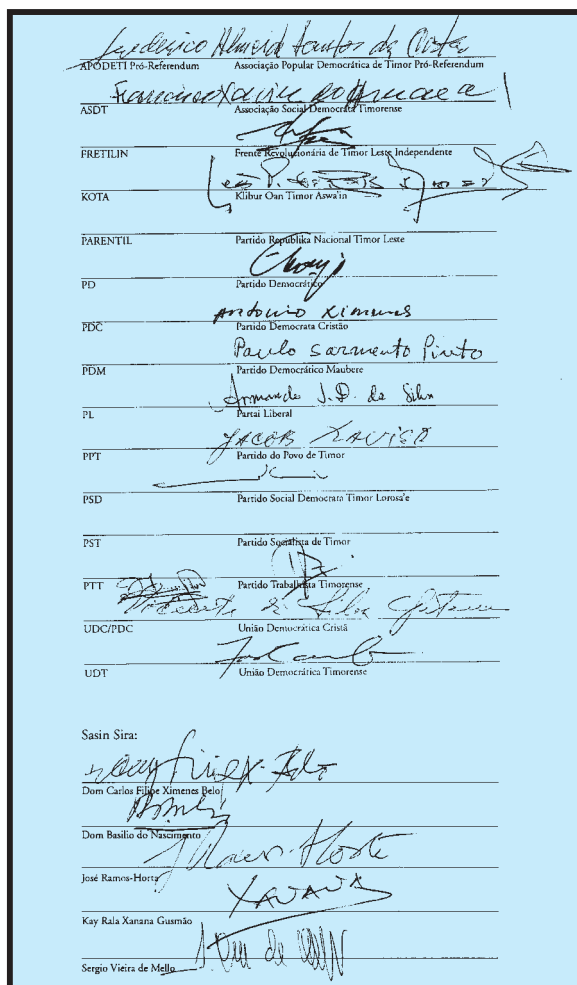 Frederico Almeida Santos da Costa
APODETI Pró-Referendum Associação Popular Democrática de Timor Pró-Referendum
Francisco Xavier do Amaral
ASDT Associação Social Democrata Timorense
FRETILIN Frente Revolucionária de Timor Leste Independente
KOTA Klibur Oan Timor Aswa'in
PARENTIL Partido Republika Nacional Timor Leste
PD Partido Democrático
Antonio Ximenes
PDC Partido Democrata Cristão
Paulo Sarmento Pinto
PDM Partido Democrático Maubere
Armando J.D. da Silva
PL Partai Liberal
JACOB XAVIER
PPT Partido do Povo de Timor
PSD Partido Social Democrata Timor Lorosa'e
PST Partido Socialista de Timor
PTT Partido Trabalhista Timorense
Vicente da Silva
UDC/PDC União Democrática Cristã
UDT União Democrática Timorense
Sasin Sira:
Dom Carlos Filipe Ximenes Belo
Dom Basilio do Nascimento
José Ramos-Horta
XANANA
Kay Rala Xanana Gusmão
Sergio Vieira de Mello